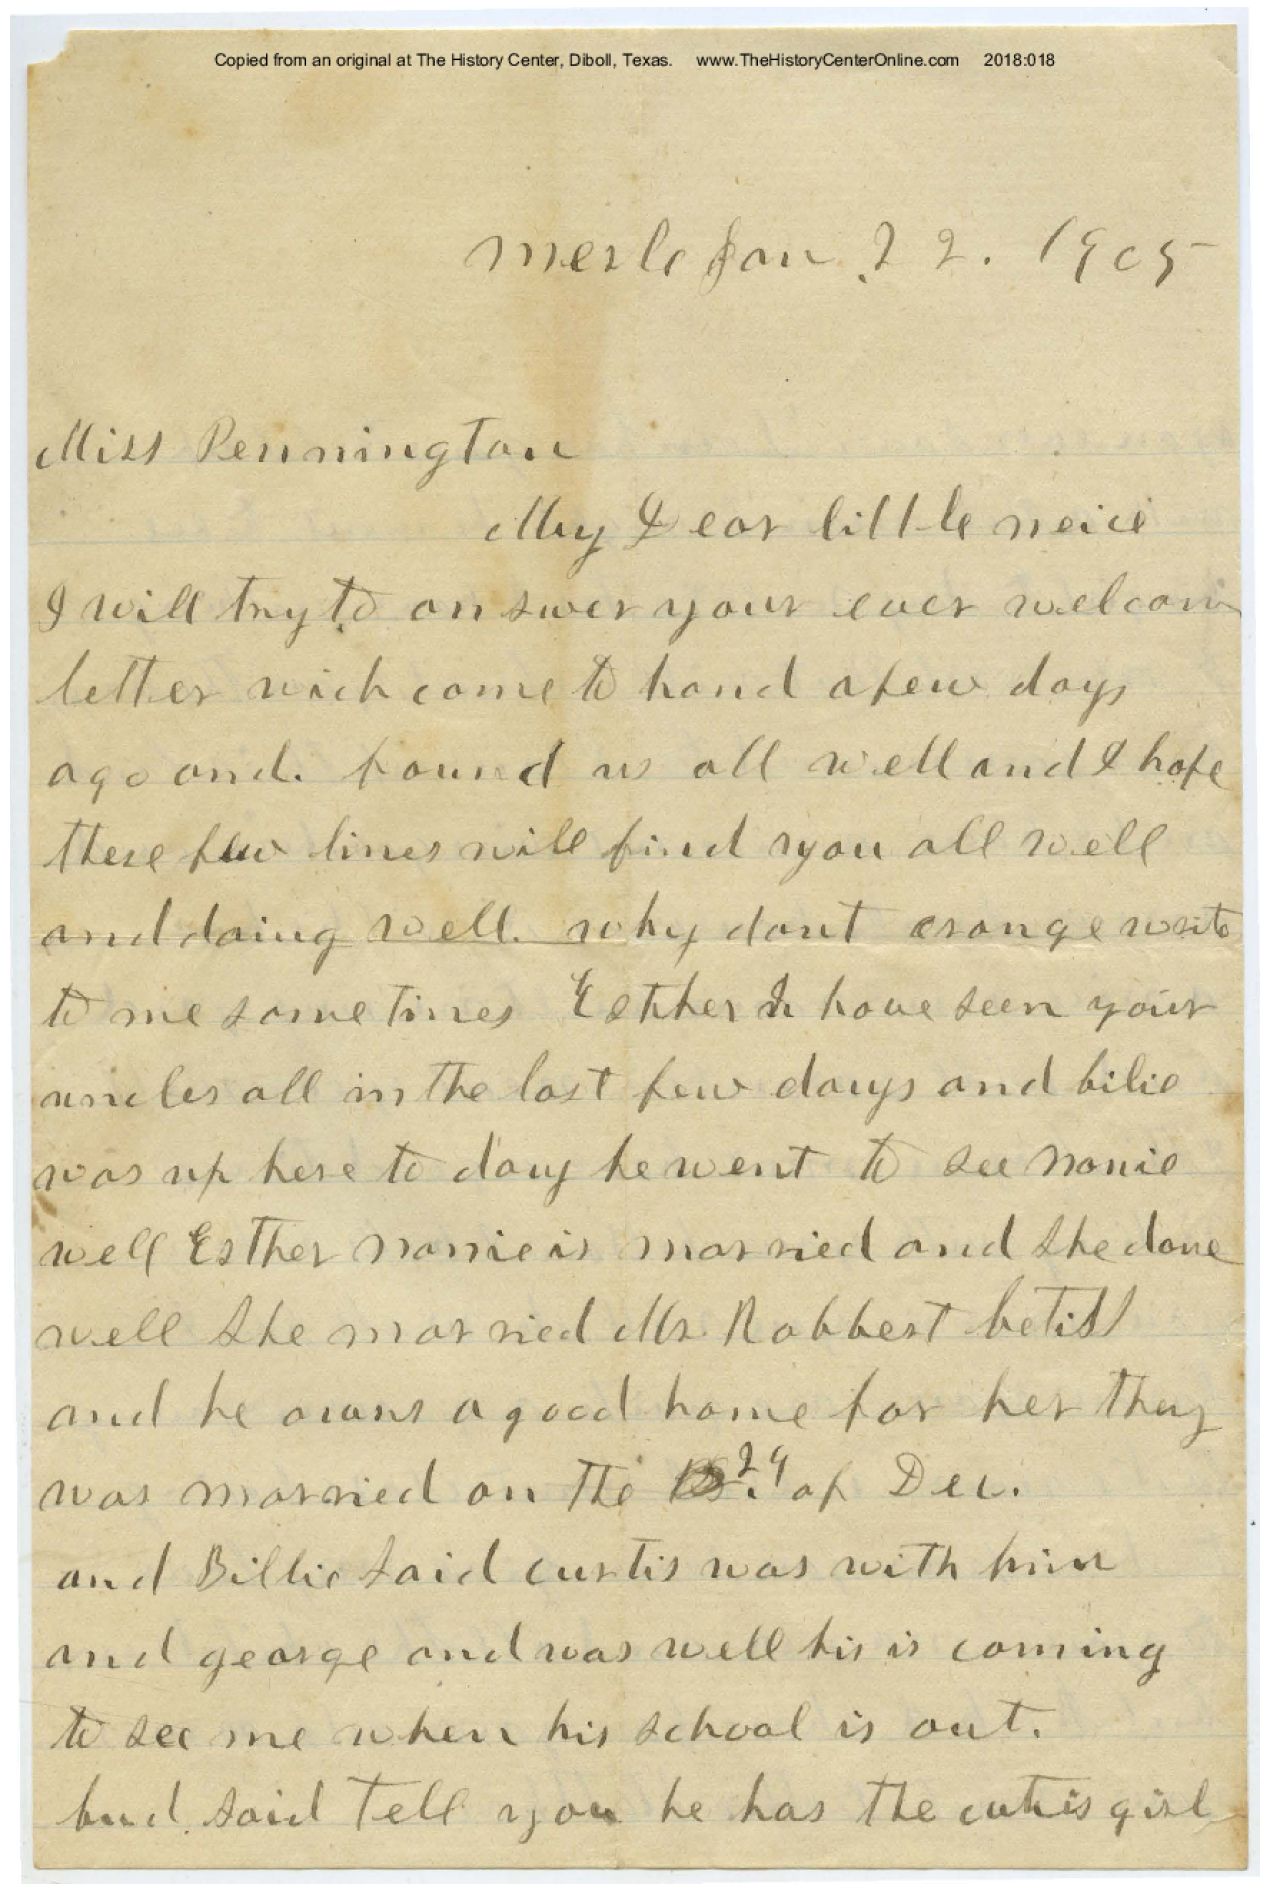 Copied from an original at The History Center, Diboll, Texas. www.TheHistoryCenterOnline.com 2018:018
Merle Jan. 22. 1905
Miss Pennington
My Dear little neice
I will try to answer your ever welcom
letter wich come to hand a few days
ago and. found us all well and I hope
these few lines will find you all well
and doing well. why dont orange write
to me some times Esther I have seen your
uncles all in the last few days and bilie
was up here to day he went to see nanie
well Esther nannie is married and she done
well she married Mr. Robbert betiss
and he owns a good home for her they
was married on the 24 of Dec.
and Billie said curtis was with him
and george and was well his is coming
to see me when his school is out.
bud said tell you he has the cutis girl